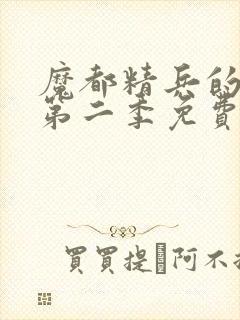 魔都精兵的
第二季免費
買買提 阿不